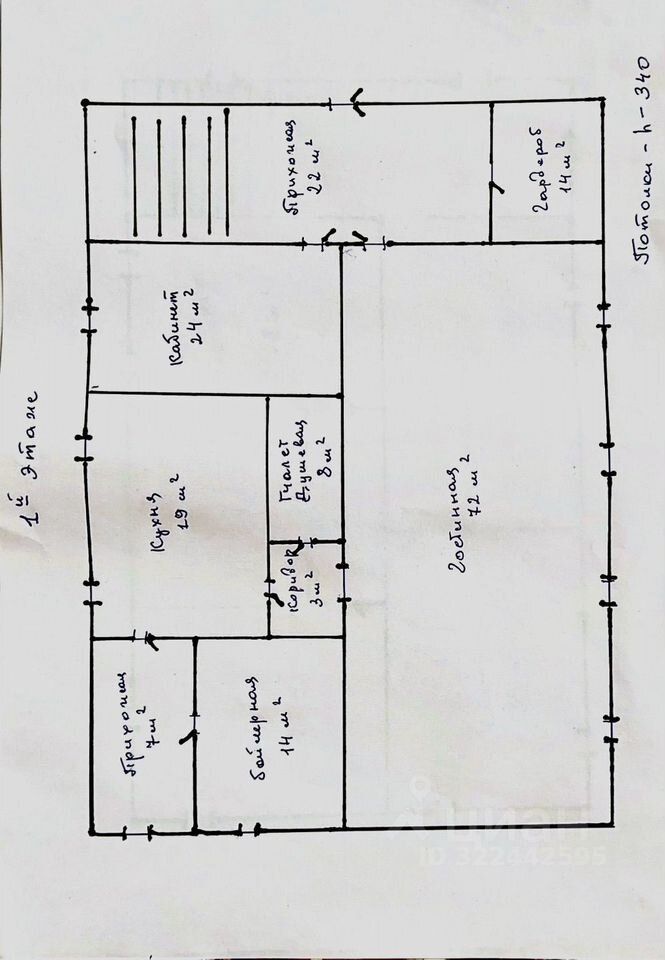 1й этаж
Прихожая
22 м²
Гардероб
14 м²
Кабинет
24 м²
Кухня
19 м²
Туалет
Душевая
8 м²
Коридор
3 м²
Гостинная
72 м²
Прихожая
7 м²
Бойлерная
14 м²
Потолки - h - 340
Циан
ID 322442595